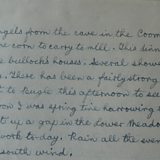 ngels from the cave in the Coom
he corn to carry to mill. This
e bullock's houses. Several show
s. There has been a fairly strong
t to Bugie this afternoon to see
row I was spring tine harrowing
t up a gap in the Lower Meadow
work to-day. Rain all the even
south wind.